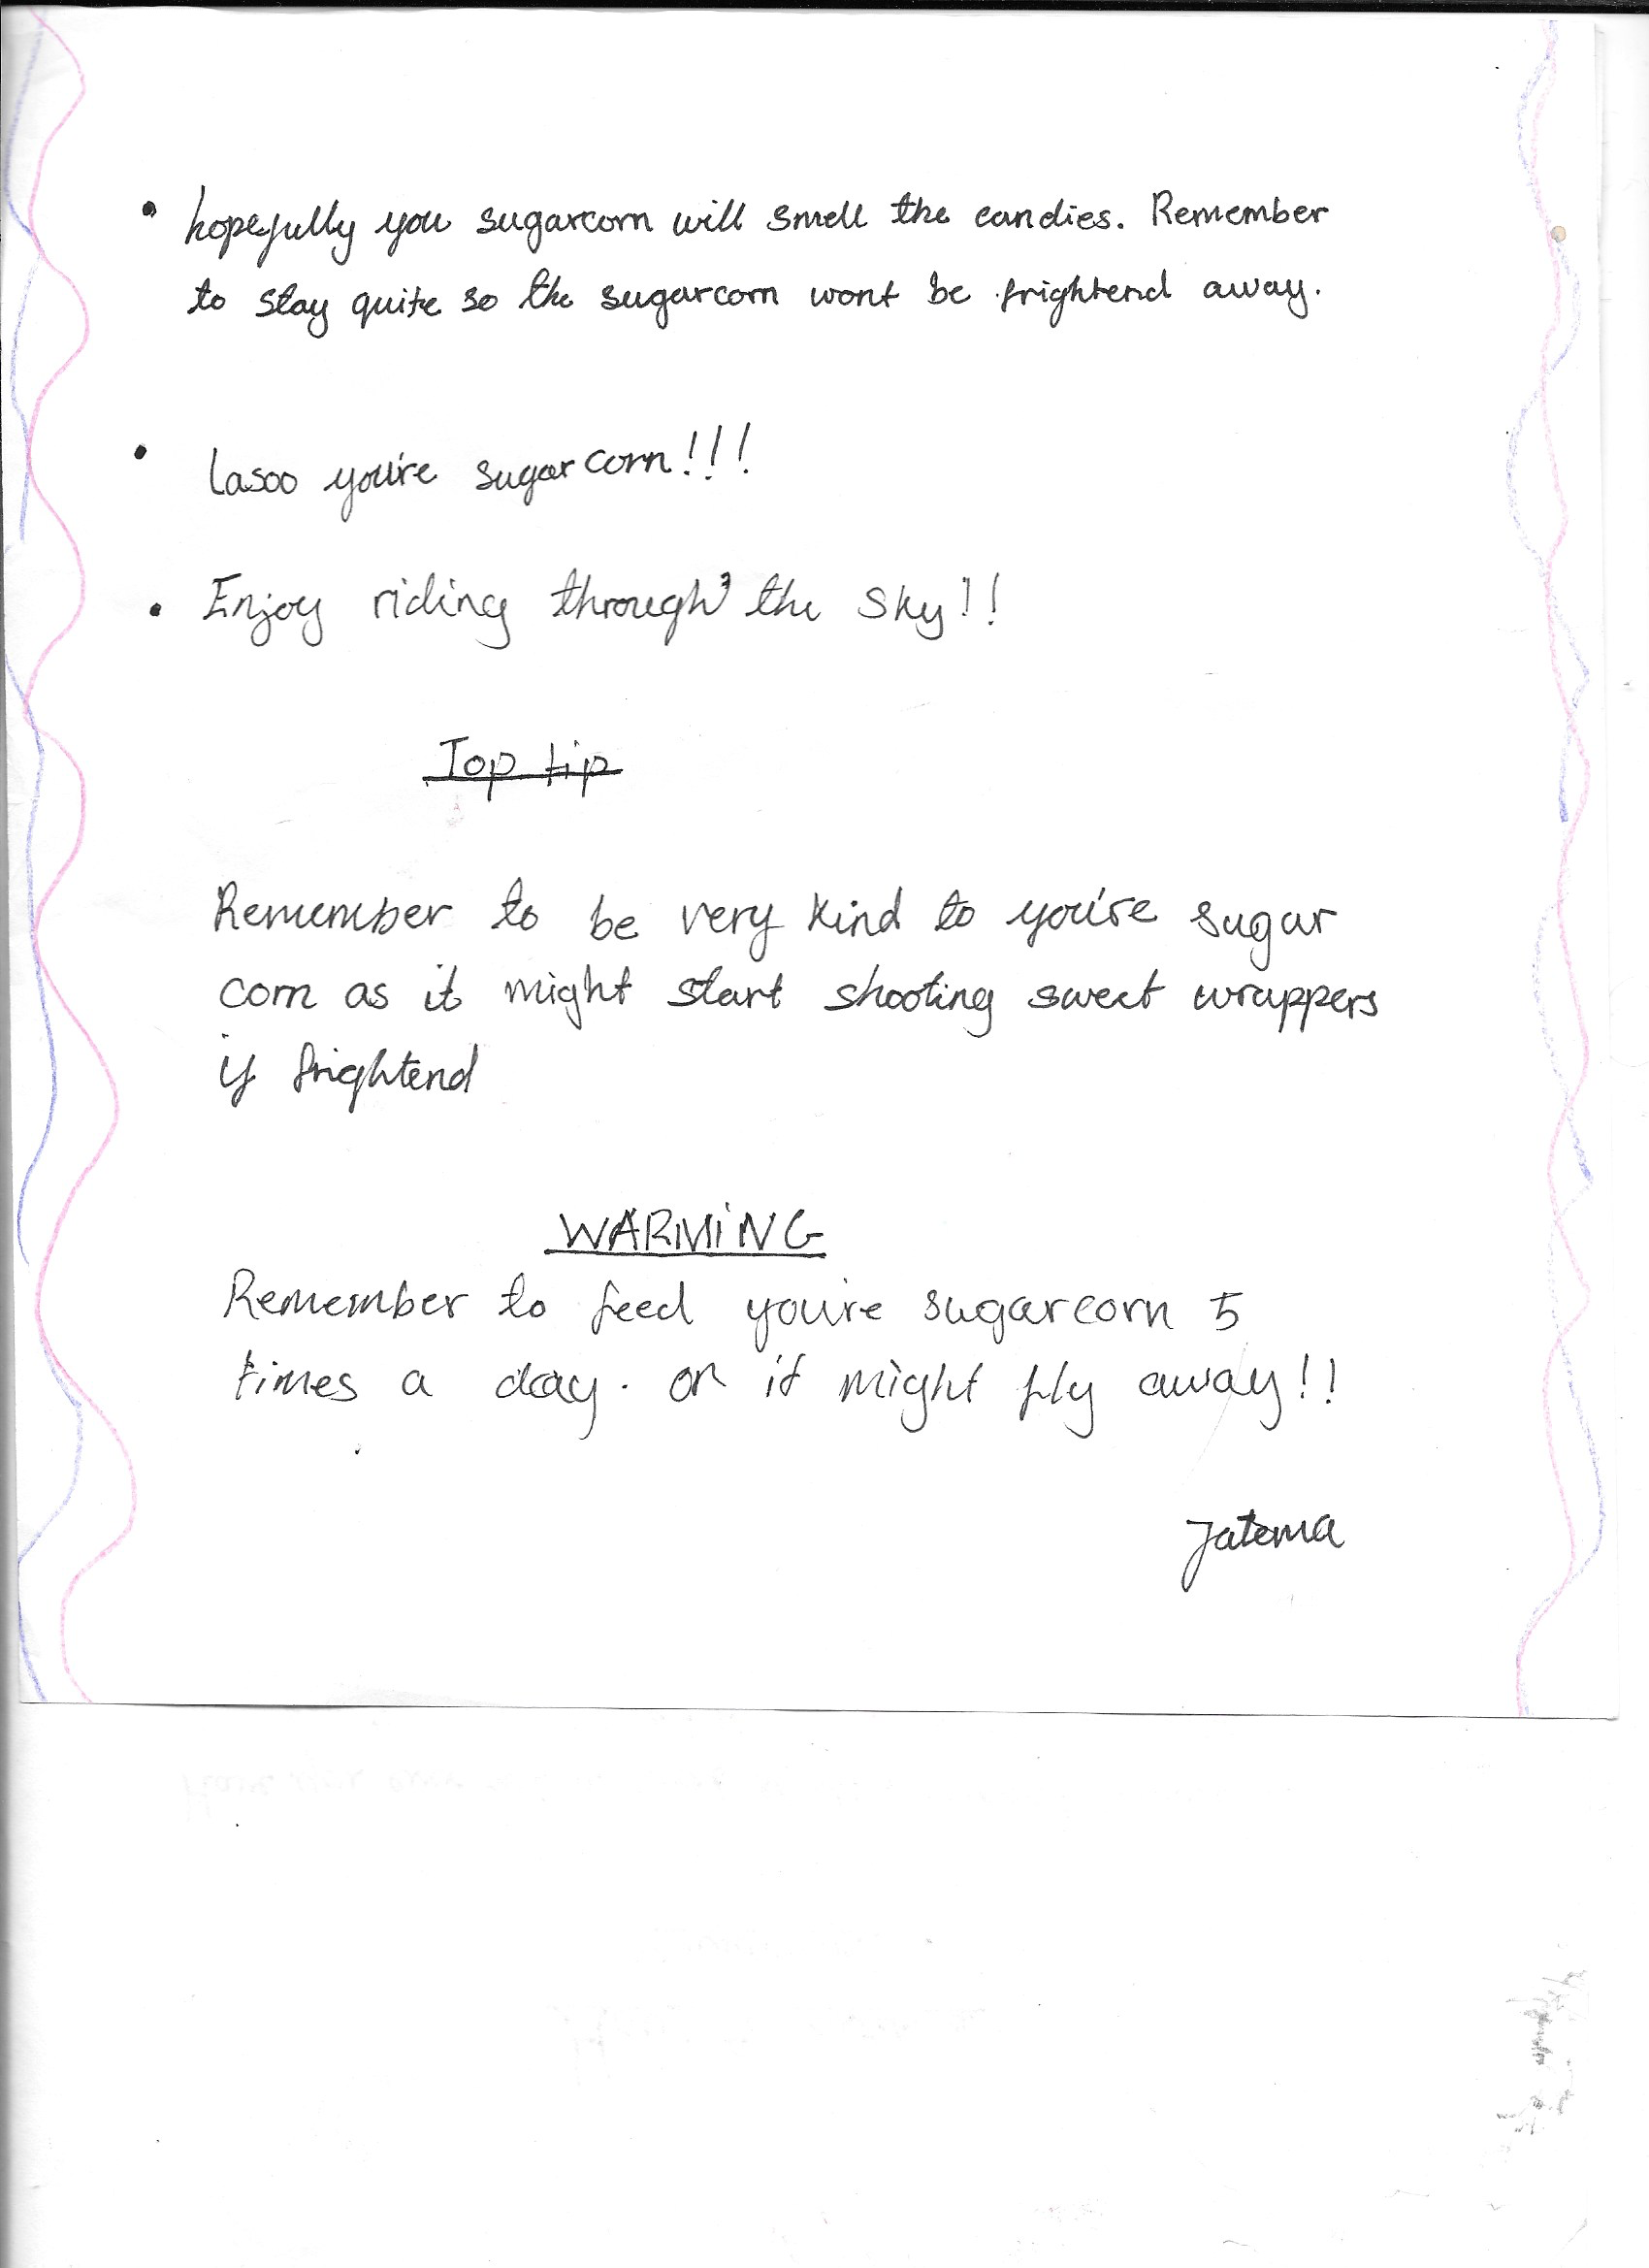 • hopefully you sugarcorn will smell the candies. Remember
to stay quite so the sugarcorn wont be frightend away.
• lasoo you're sugarcorn!!!
• Enjoy riding through the sky!!
Top tip
Remember to be very kind to you're sugar
corn as it might start shooting sweet wrappers
if frightend
WARMiNG
Remember to feed you're sugarcorn 5
times a day. or it might fly away!!
Fatema